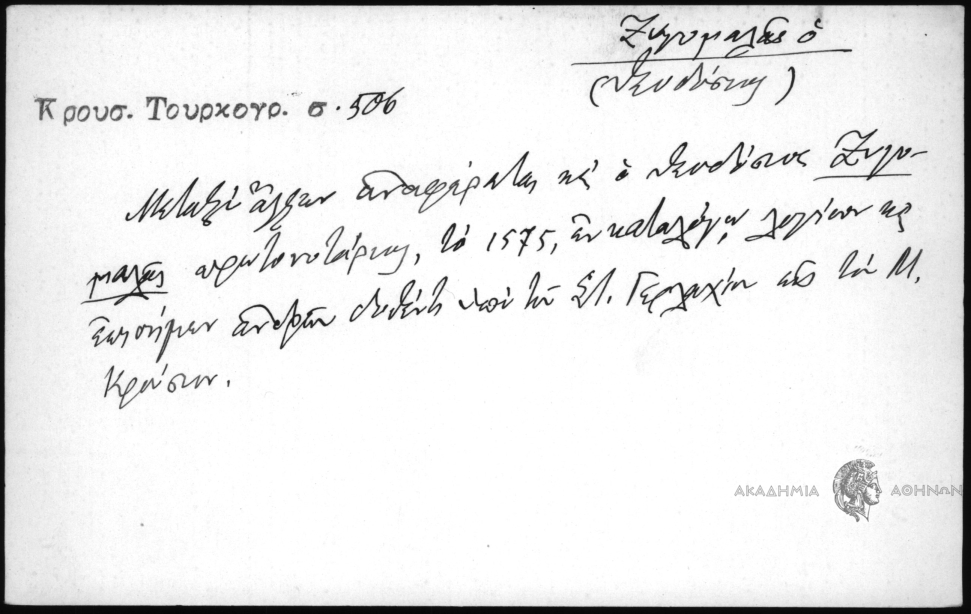 Ζυγομαλᾶς ὁ
(Θεοδόσιος)
Κρουσ. Τουρκογρ. σ. 506
Μεταξὺ ἄλλων ἀναφέρεται καὶ ὁ Θεοδόσιος Ζυγο-
μαλᾶς πρωτονοτάριος, τὸ 1575, ἐν καταλόγῳ λογίων καὶ
ἐπισήμων ἀνδρῶν δοθέντι ὑπὸ τοῦ Στ. Γερλαχίου εἰς τὸν Μ.
Κρούσιον.
ΑΚΑΔΗΜΙΑ ΑΘΗΝΩΝ